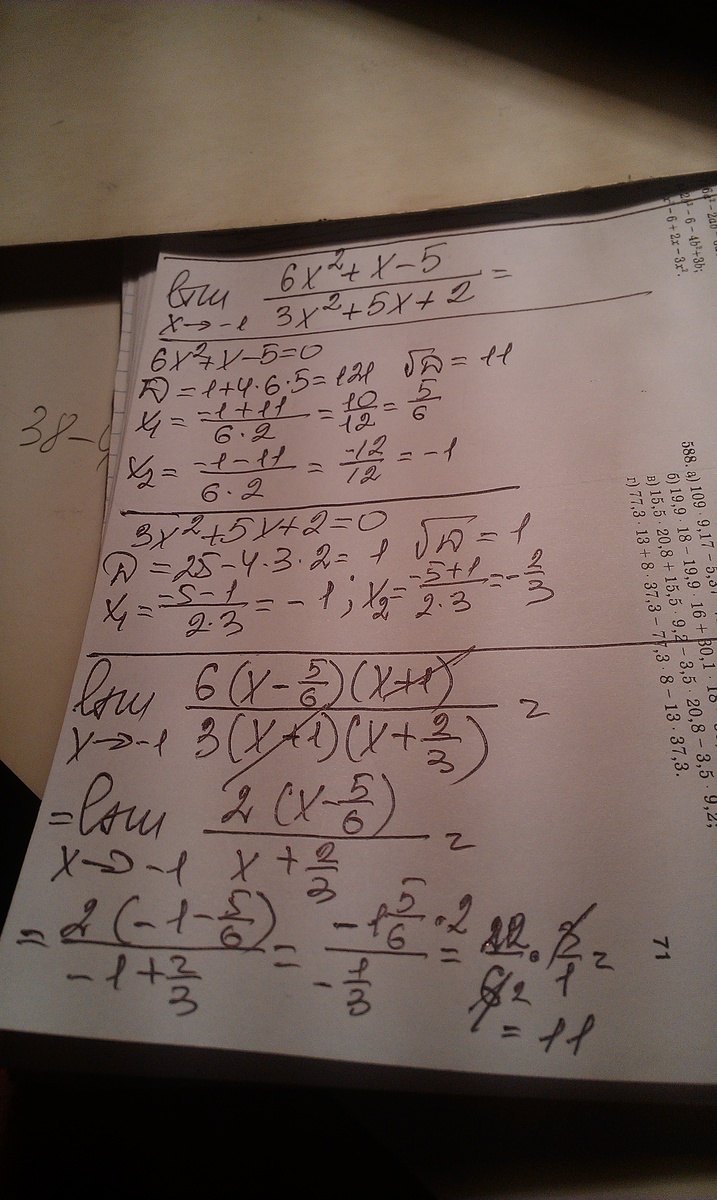 lim (6x²+x-5)/(3x²+5x+2) =
x→-1
6x²+x-5=0
D=1+4·6·5=121 √D=11
x₁=(-1+11)/(6·2)=10/12=5/6
x₂=(-1-11)/(6·2)=-12/12=-1
3x²+5x+2=0
D=25-4·3·2=1 √D=1
x₁=(-5-1)/(2·3)=-1; x₂=(-5+1)/(2·3)=-2/3
lim (6(x-5/6)(x+1))/(3(x+1)(x+2/3)) =
x→-1
=lim (2(x-5/6))/(x+2/3) =
x→-1
= (2(-1-5/6))/(-1+2/3) = (-1 5/6·2)/(-1/3) =
= 11
38-
2ab
-6-4b²+3b;
-6+2x-3x².
588. а) 109 · 9,17 - 5,37
б) 19,9 · 18 - 19,9 · 16 + 30,1 · 18
в) 15,5 · 20,8 + 15,5 · 9,2 - 3,5 · 20,8 - 3,5 · 9,2;
г) 77,3 · 13 + 8 · 37,3 - 77,3 · 8 - 13 · 37,3.
71